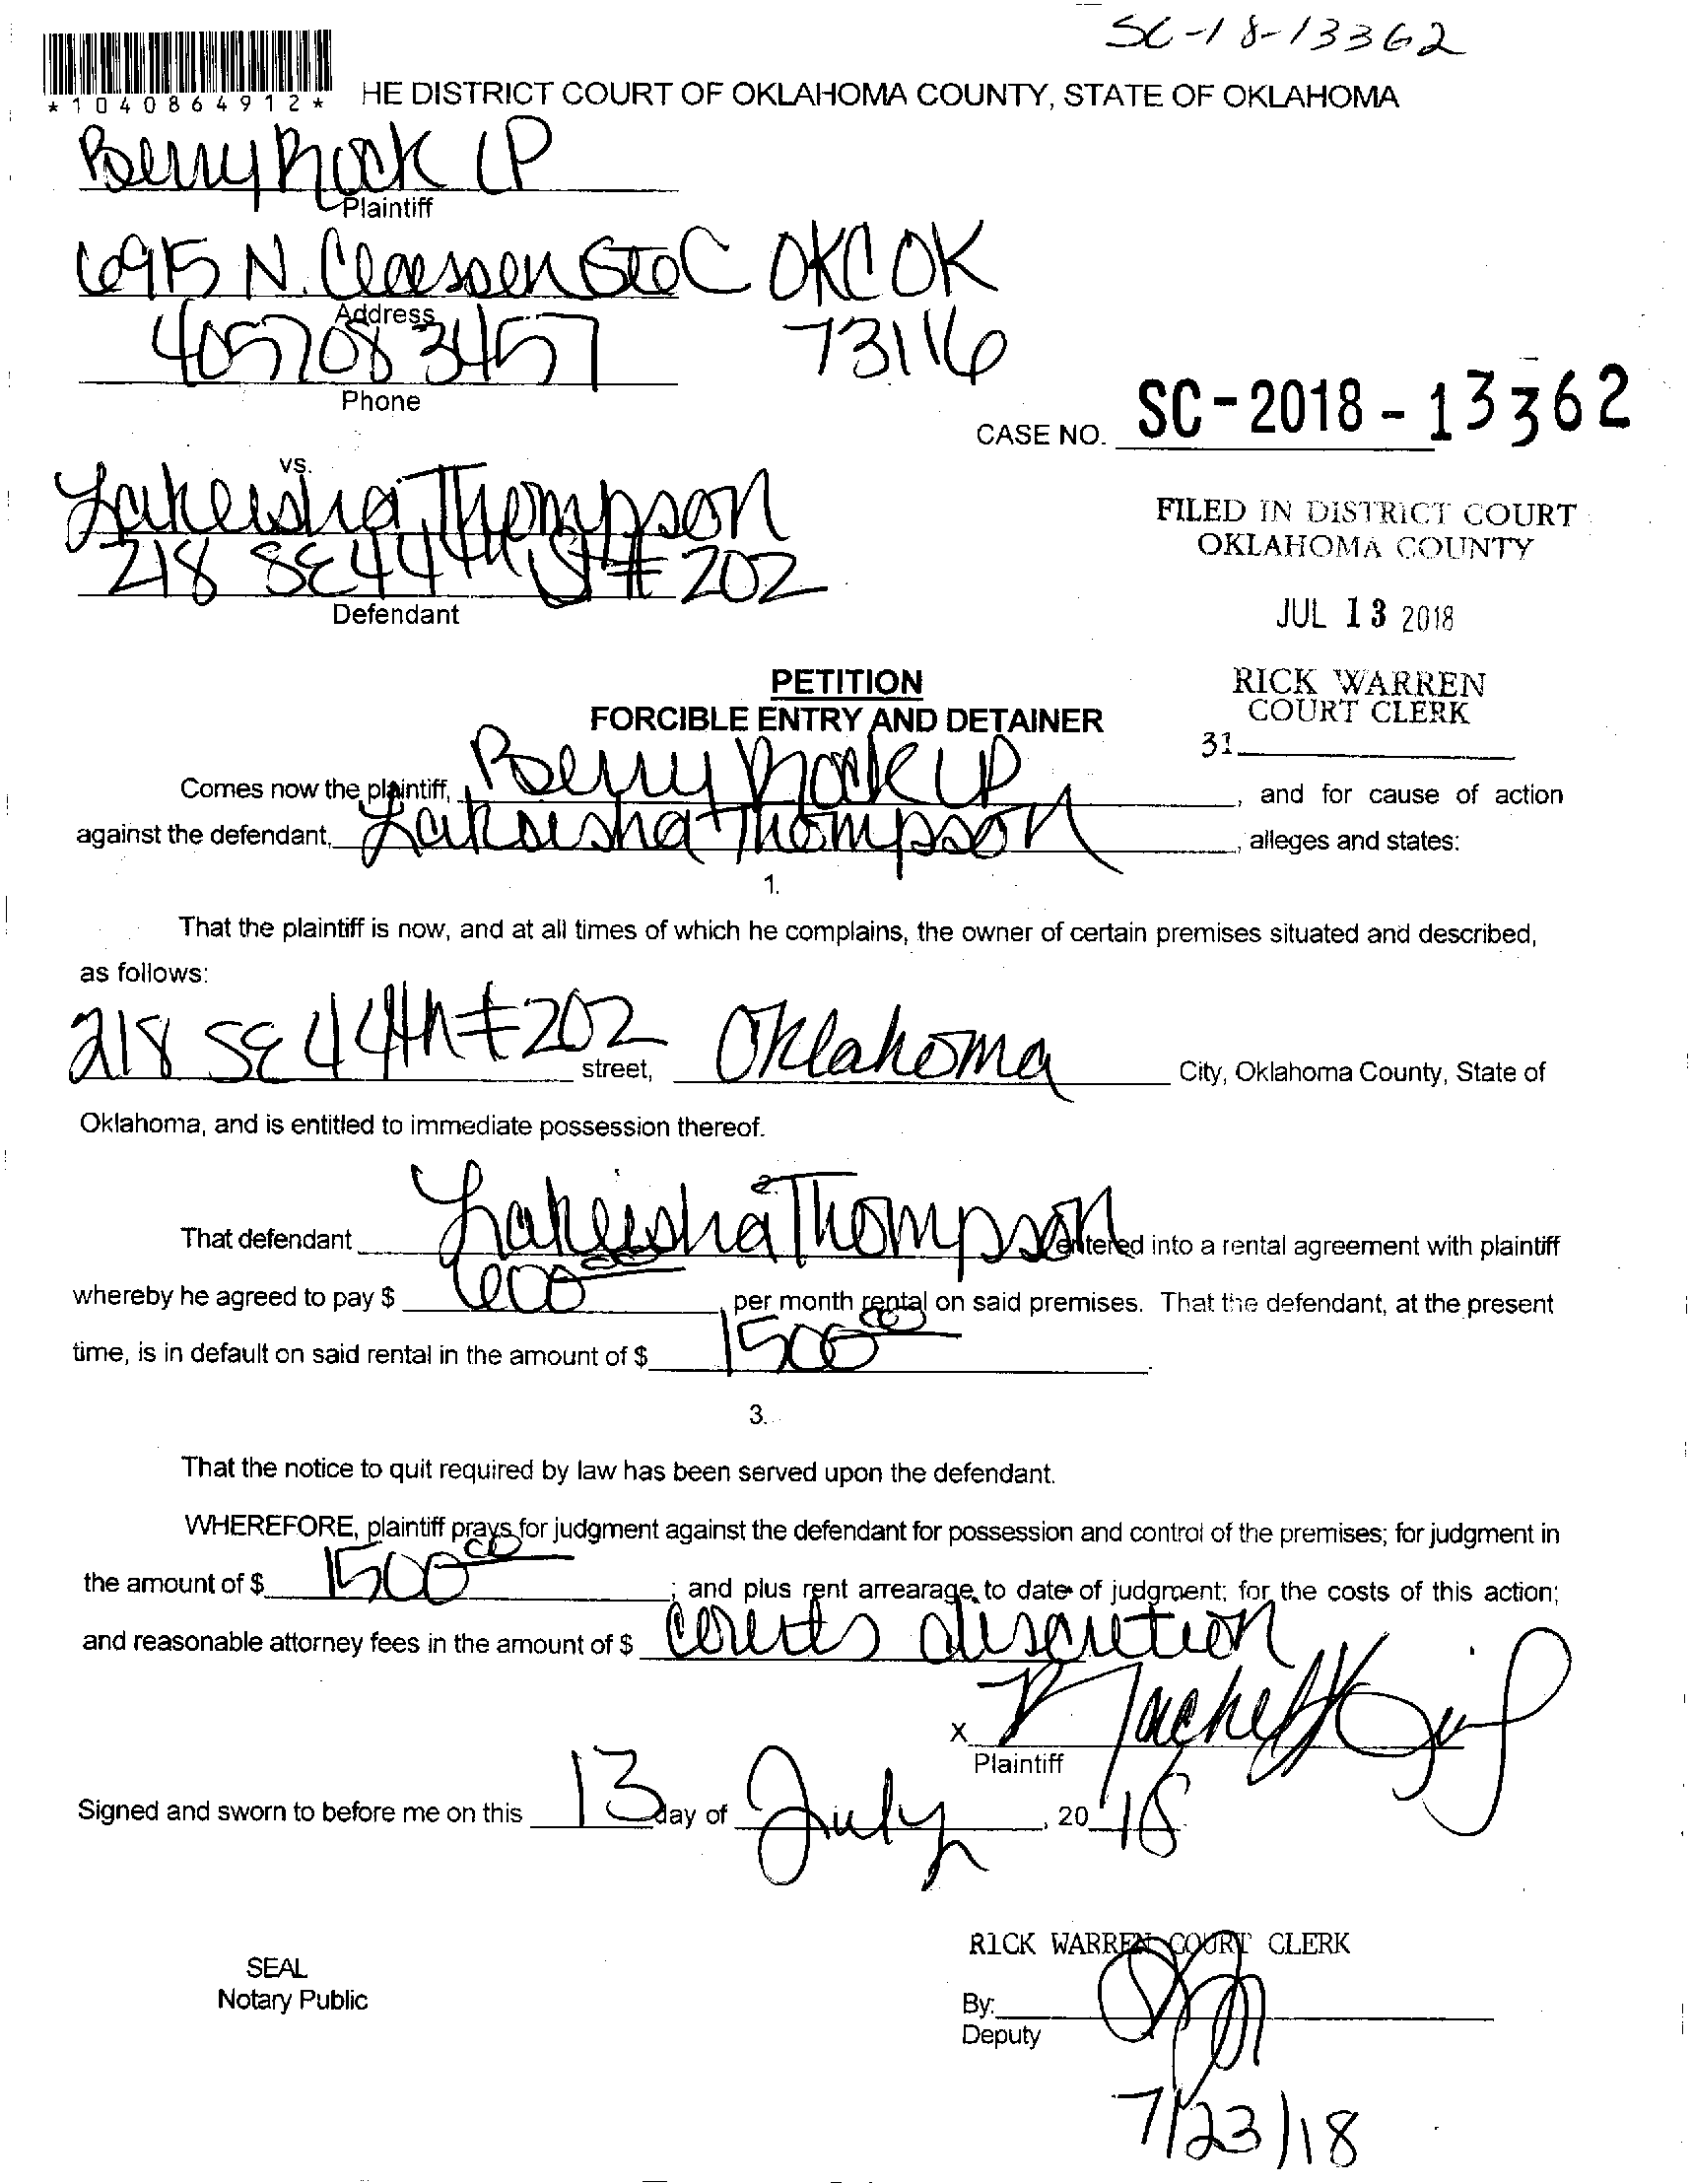 SC-18-13362
*1040864912*
HE DISTRICT COURT OF OKLAHOMA COUNTY, STATE OF OKLAHOMA
Berry Rock LP
Plaintiff
6915 N. Classen Ste C OKC OK
Address
4057083457 73116
Phone
CASE NO. SC-2018-13362
vs.
Lakeisha Thompson
218 SE 44th St #202
Defendant
FILED IN DISTRICT COURT
OKLAHOMA COUNTY
JUL 13 2018
RICK WARREN
COURT CLERK
31
PETITION
FORCIBLE ENTRY AND DETAINER
Comes now the plaintiff, Berry Rock LP, and for cause of action
against the defendant, Lakeisha Thompson, alleges and states:
1.
That the plaintiff is now, and at all times of which he complains, the owner of certain premises situated and described,
as follows:
218 SE 44th #202 street, Oklahoma City, Oklahoma County, State of
Oklahoma, and is entitled to immediate possession thereof.
2.
That defendant Lakeisha Thompson entered into a rental agreement with plaintiff
whereby he agreed to pay $ 600 00, per month rental on said premises. That the defendant, at the present
time, is in default on said rental in the amount of $ 1500 00.
3.
That the notice to quit required by law has been served upon the defendant.
WHEREFORE, plaintiff prays for judgment against the defendant for possession and control of the premises; for judgment in
the amount of $ 1500 00; and plus rent arrearage to date of judgment; for the costs of this action;
and reasonable attorney fees in the amount of $ courts discretion
X
Plaintiff
Signed and sworn to before me on this 13 day of July, 2018
RICK WARREN COURT CLERK
SEAL
Notary Public
By:
Deputy
7/23/18